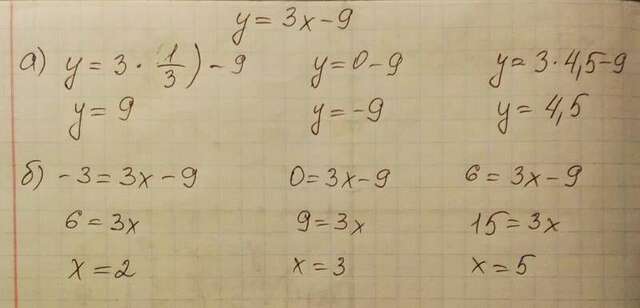 y = 3x - 9
а) y = 3 · 1/3) - 9 y = 0 - 9 y = 3 · 4,5 - 9
y = 9 y = -9 y = 4,5
б) -3 = 3x - 9 0 = 3x - 9 6 = 3x - 9
6 = 3x 9 = 3x 15 = 3x
x = 2 x = 3 x = 5